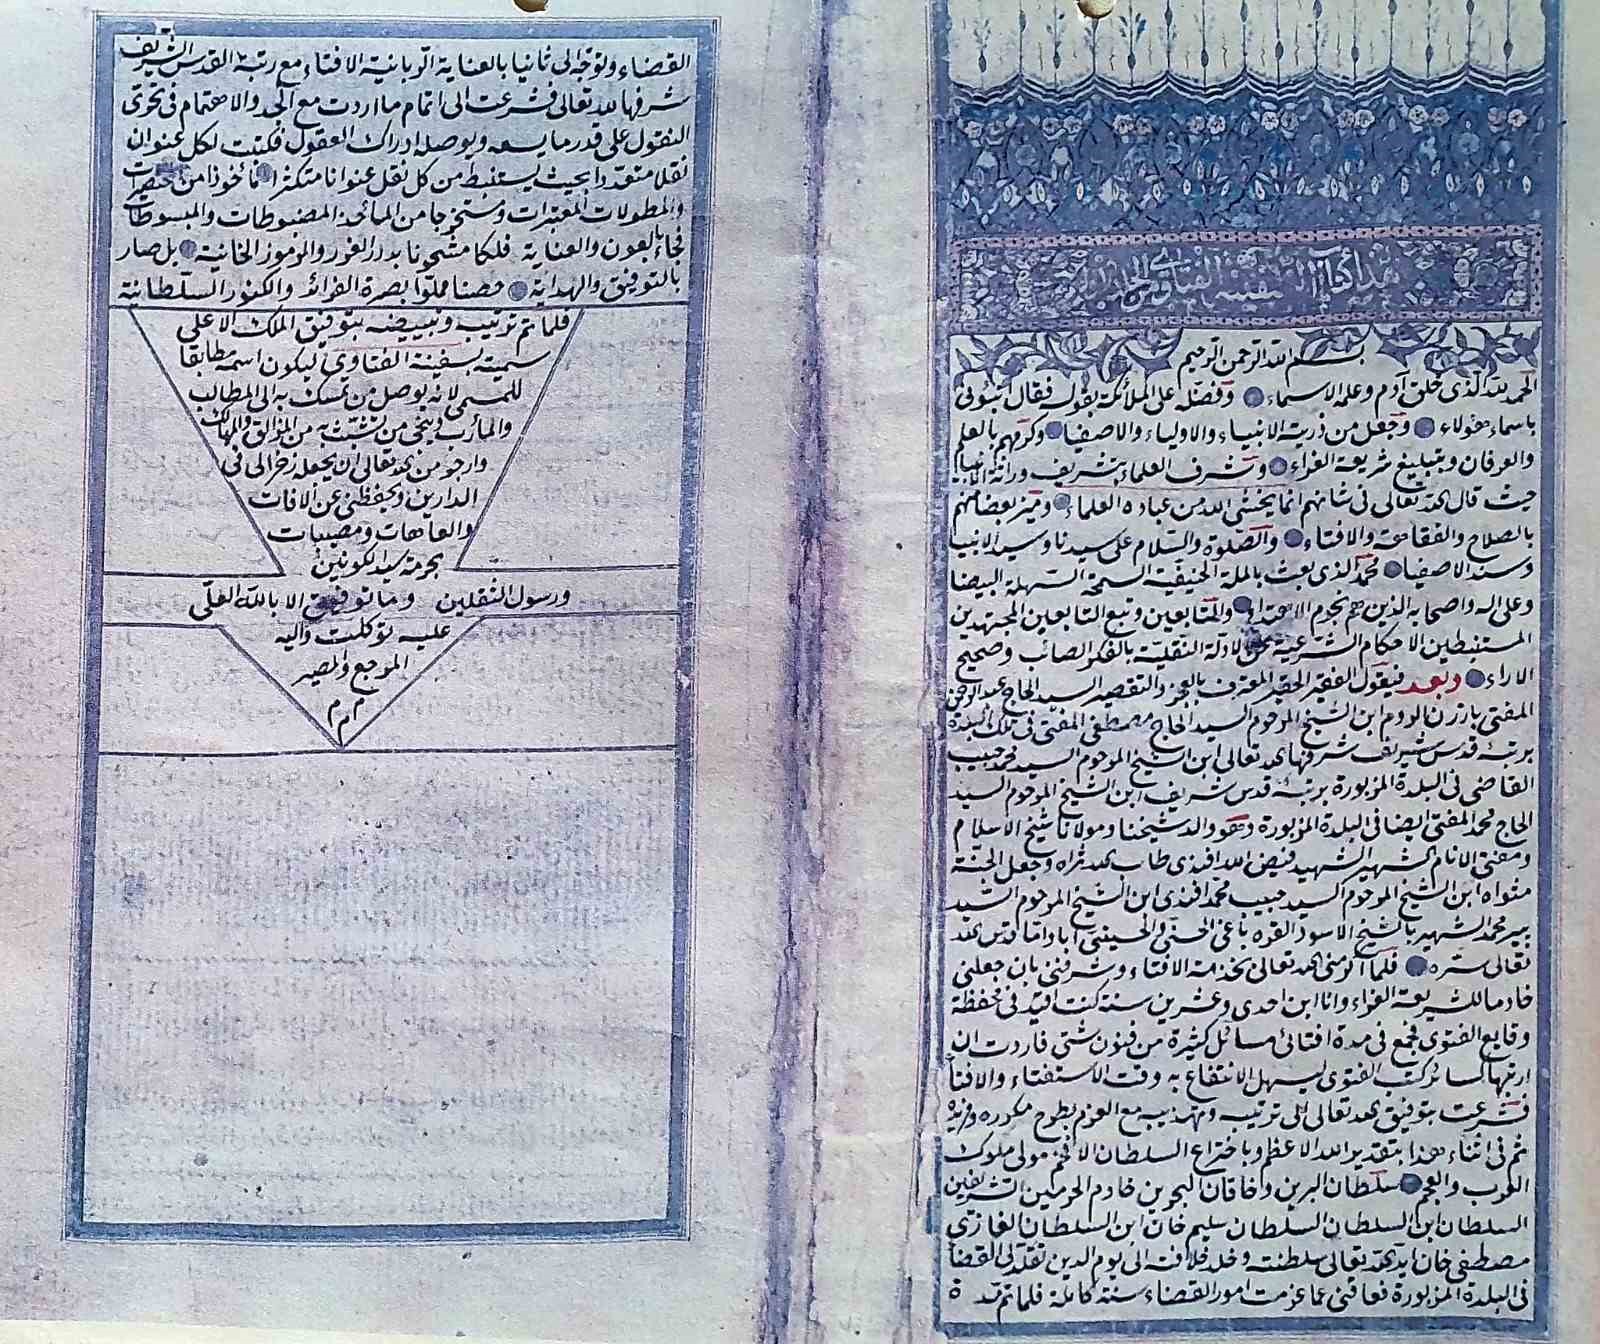 هذا كتاب السفينة الفتاوى
بسم الله الرحمن الرحيم
الحمد لله الذى خلق آدم وعلمه الاسماء وفضله على الملائكة بقوله فقال انبئونى
باسماء هؤلاء وجعل من ذريته الانبياء والاولياء والاصفياء وكرمهم بالعلم
والعرفان وبتبليغ شريعة الغراء وشرف العلماء بتشريف وراثة الانبياء
حيث قال الله تعالى فى شانهم انما يخشى الله من عباده العلماء وميز بعضا منهم
بالصلاح والفقاهة والافتاء والصلوة والسلام على سيدنا وسيد الانبيا
وسند الاصفياء محمد الذى بعث بالملة الحنيفية السمحة السهلة البيضا
وعلى اله واصحابه الذين هم نجوم الاهتداء والتابعين وتبع التابعين المجتهدين
المستنبطين الاحكام الشرعية عن الادلة النقلية بالفكر الصائب وصحيح
الاراء وبعد فيقول الفقير الحقير المعترف بالعجز والتقصير السيد الحاج عبد الرحمن
المفتى بارزن الروم ابن الشيخ المرحوم السيد الحاج مصطفى المفتى فى تلك البلدة
برتبة قدس شريف شرفها الله تعالى ابن الشيخ المرحوم السيد محمد حبيب
القاضى فى البلدة المزبورة برتبة قدس شريف ابن الشيخ المرحوم السيد
الحاج محمد المفتى ايضا فى البلدة المزبورة وهو والد شيخنا ومولانا شيخ الاسلام
ومفتى الانام الشهير الشهيد فيض الله افندى طاب الله ثراه وجعل الجنة
مثواه ابن الشيخ المرحوم السيد حبيب محمد افندى ابن الشيخ المرحوم السيد
بير محمد الشهير بالشيخ الاسود القره باغى الحسنى والحسينى ابا واما قدس الله
تعالى سره فلما اكرمنى الله تعالى بخدمة الافتاء وشرفنى بان جعلنى
خادما للشريعة الغراء وانا ابن احدى وعشرين سنة كنت اقيد فى محفظة
وقايع الفتوى فجمع فى مدة افتائى مسائل كثيرة من فنون شتى فاردت ان
ارتبها كسائر كتب الفتوى ليسهل الانتفاع به وقت الاستفتاء والافتا
فشرعت بتوفيق الله تعالى الى ترتيب وتهذيب مع العزم بطرح مكرره ومزيده
ثم فى اثناء هذا بتقدير الله الاعظم وباختراع السلطان الافخم مولى ملوك
العرب والعجم سلطان البرين وخاقان البحرين خادم الحرمين الشريفين
السلطان ابن السلطان السلطان سليم خان ابن السلطان الغازى
مصطفى خان ايد الله تعالى سلطنته وخلد خلافته الى يوم الدين تقلد لى القضا
فى البلدة المزبورة فعاقنى عما عزمت امور القضاء سنة كاملة فلما تم مدة
القضاء وتوجه الى ثانيا بالعناية الربانية الافتاء مع رتبة القدس الشريف
شرفها الله تعالى فشرعت الى اتمام ما اردت مع الجد والاهتمام فى تحرى
النقول على قدر ما يسعه ويوصله ادراك العقول فكتبت لكل عنوان
نقلا متعددا بحيث يستنبط من كل نقل عنوانا متكثرا مأخوذا من المختصرات
والمطولات المعتبرات ومستخرجا من المآخذ المضبوطات والمبسوطات
فجاء بالعون والعناية فلكا مشحونا بدرر الغرر والرموز الخانية بل صار
بالتوفيق والهداية حصنا مملوا بصرة الفرائد والكنوز السلطانية
فلما تم ترتيبه وتبييضه بتوفيق الملك الاعلى
سميته بسفينة الفتاوى ليكون اسمه مطابقا
للمسمى لانه يوصل من تمسك به الى المطالب
والمآرب وينجى من تشبث به من المزالق والمهالك
وارجو من الله تعالى ان يجعله ذخرا لى فى
الدارين ويحفظنى عن الافات
والعاهات ومصيبات
بحرمة سيد الكونين
ورسول الثقلين وما توفيقى الا بالله العلى
عليه توكلت واليه
المرجع والمصير
م م م